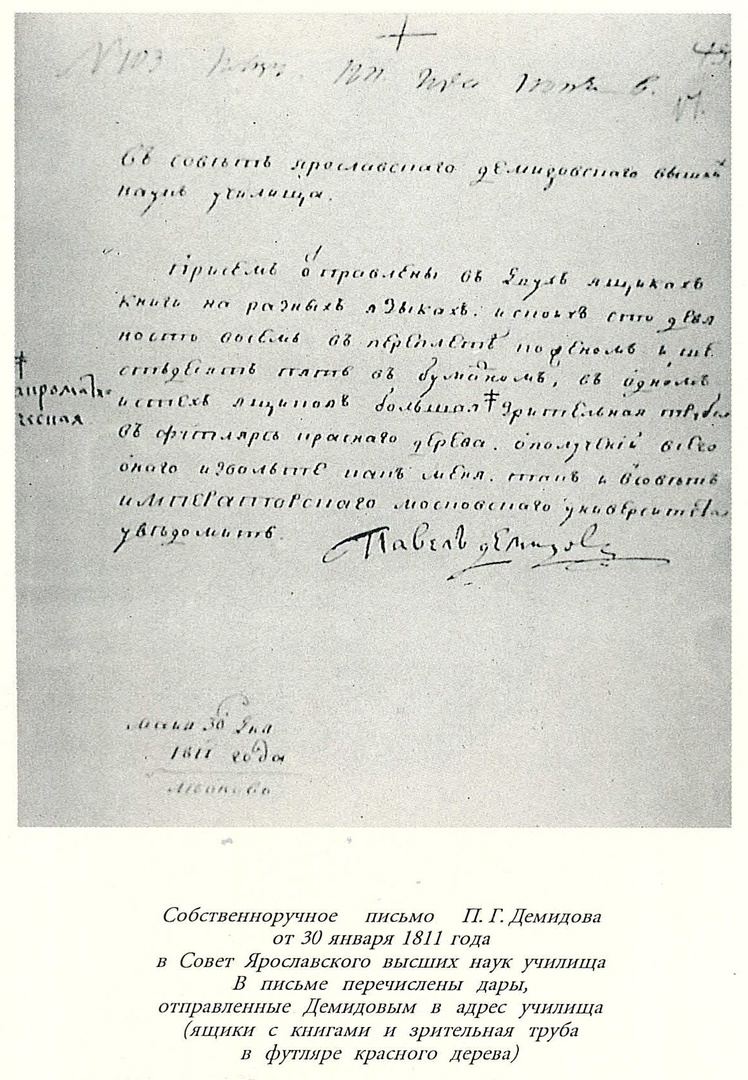 № 103
въ совѣтъ ярославскаго демидовскаго вышнихъ
наукъ училища.
Присемъ отправлены въ двухъ ящикахъ
книги на разныхъ языкахъ. изкоихъ сто девя
носто восемь въ переплетѣ
въ бумажномъ, въ одномъ
изтехъ ящиковъ большая ‡ зрительная труба
‡
ахроматическая
въ футляре краснаго дерева. ополучении всего
онаго извольте какъ меня. такъ и всовѣтъ
императорскаго московскаго университета
увѣдомить. Павелъ демидовъ
30 дня
1811 года
Собственноручное письмо П. Г. Демидова
от 30 января 1811 года
в Совет Ярославского высших наук училища
В письме перечислены дары,
отправленные Демидовым в адрес училища
(ящики с книгами и зрительная труба
в футляре красного дерева)